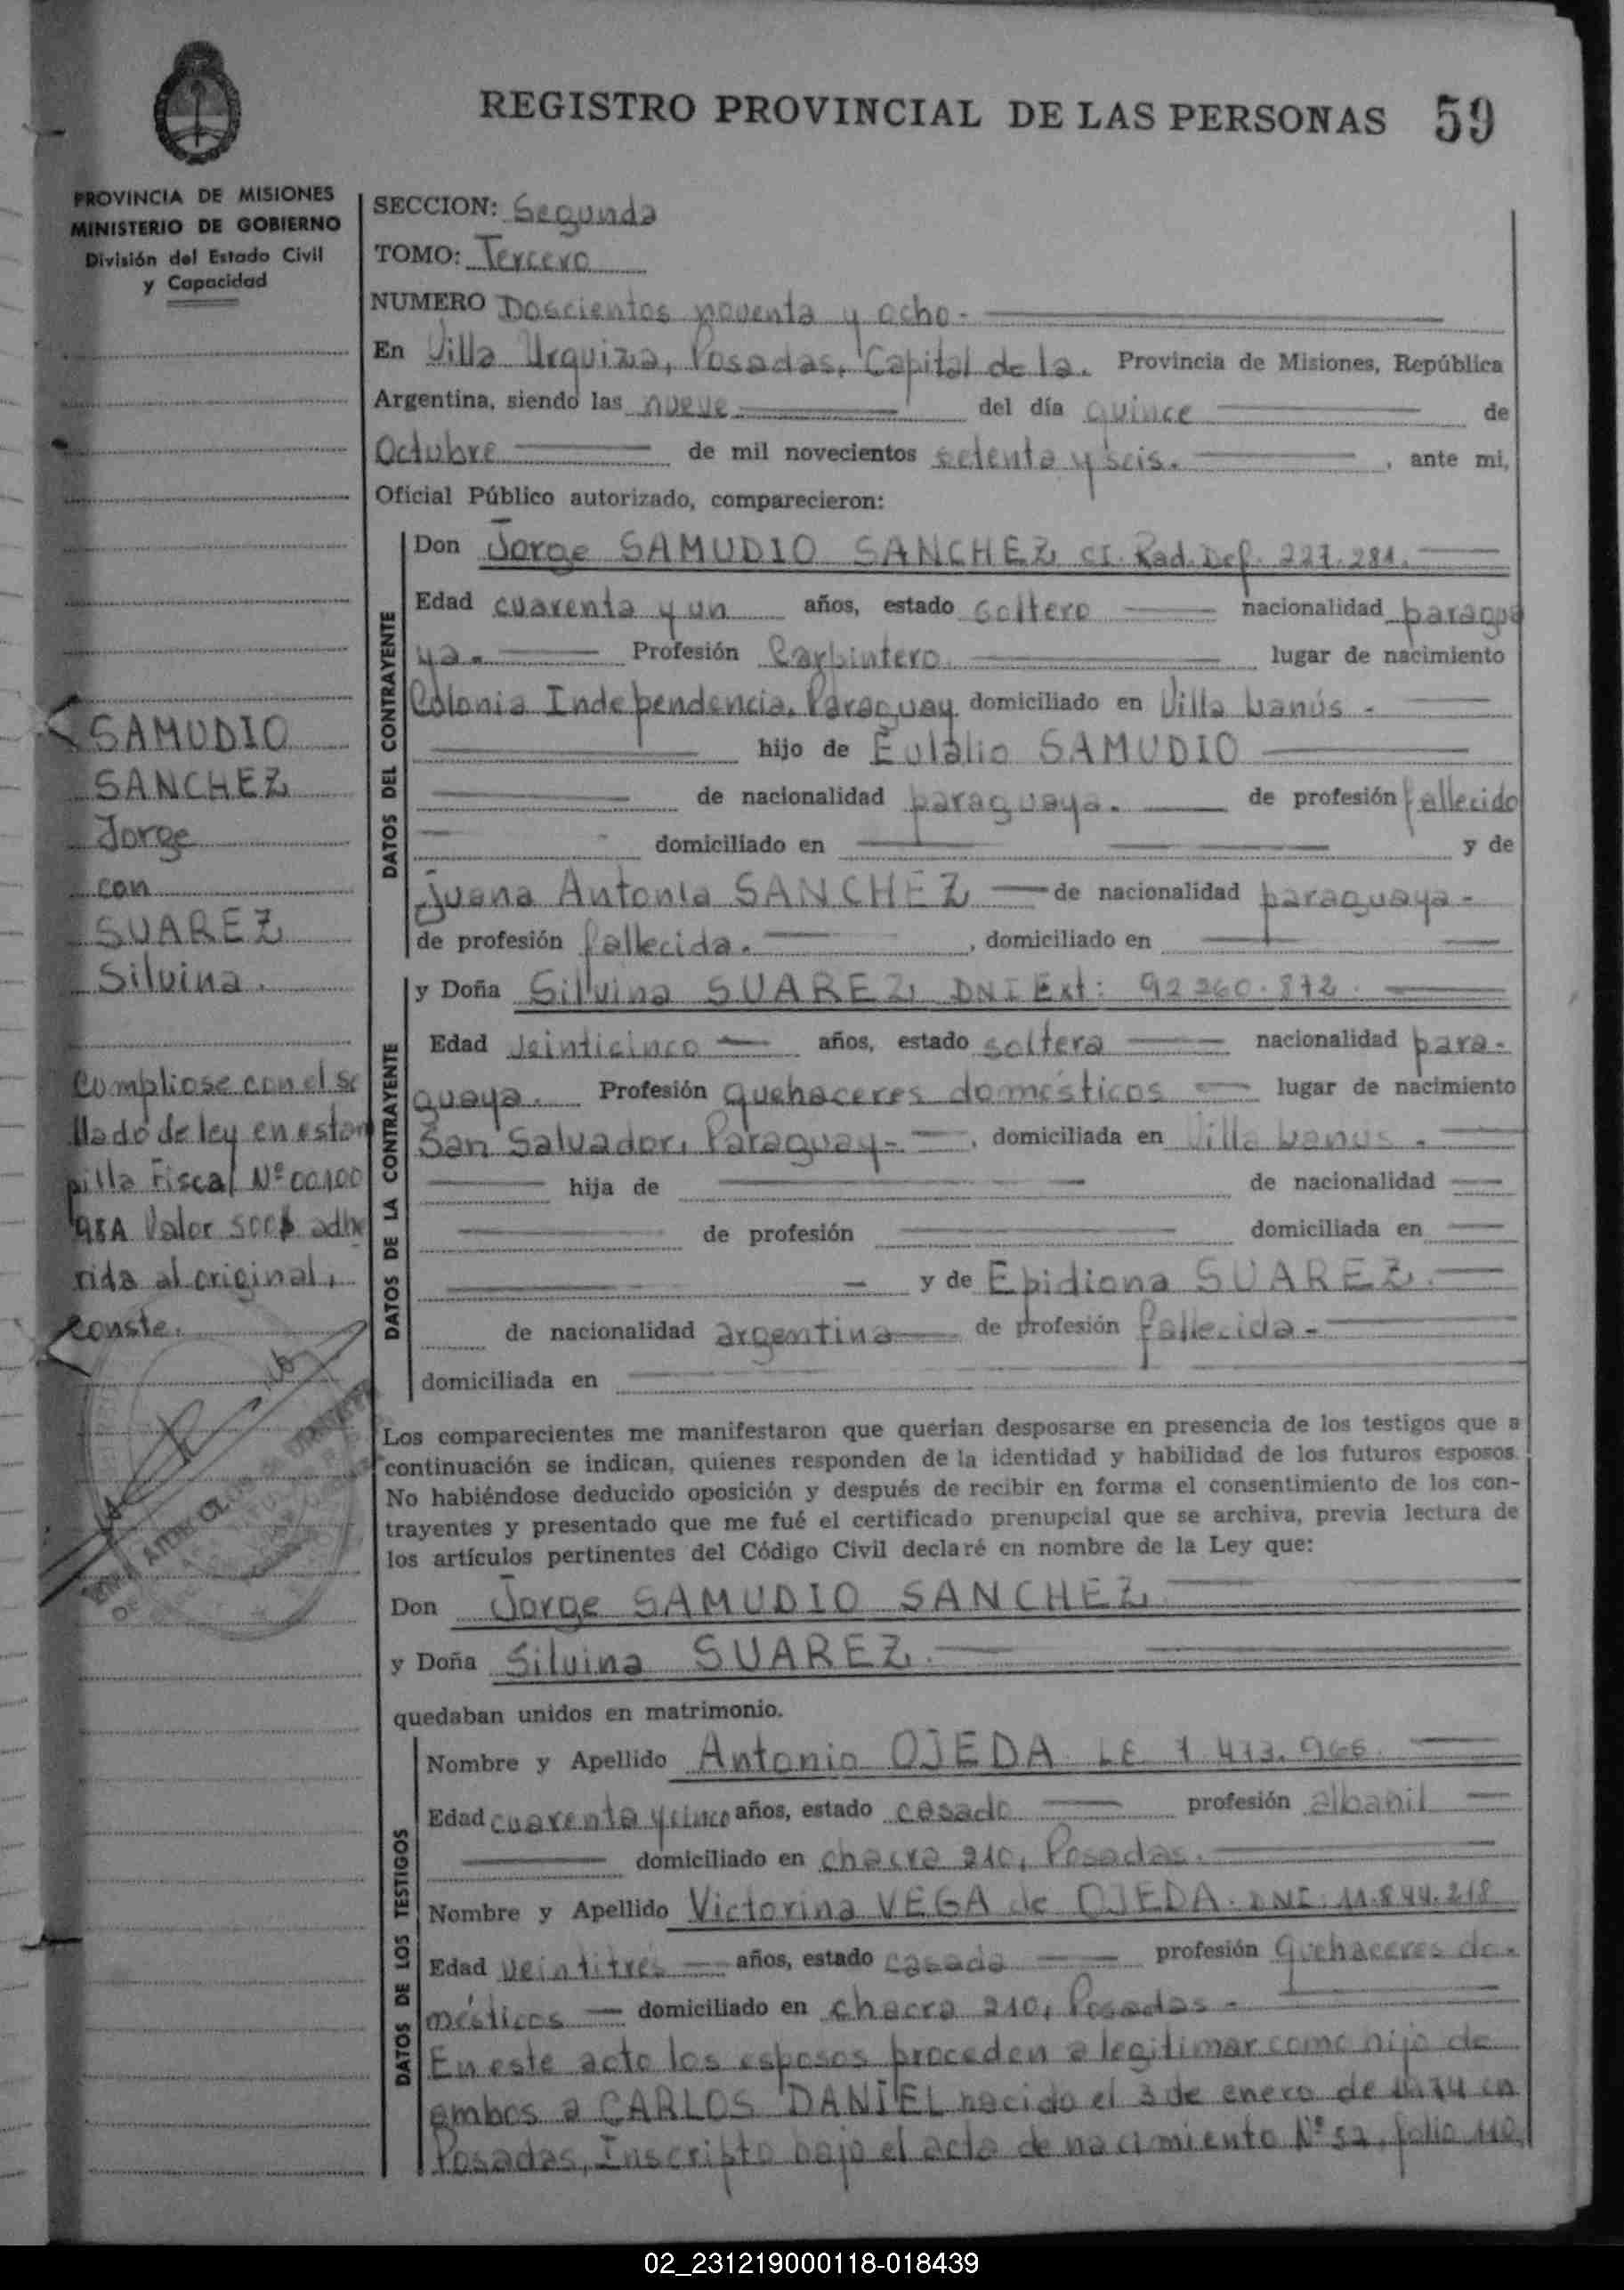 REGISTRO PROVINCIAL DE LAS PERSONAS 59
PROVINCIA DE MISIONES
MINISTERIO DE GOBIERNO
División del Estado Civil
y Capacidad
SECCION: Segunda
TOMO: Tercero
NUMERO Doscientos noventa y ocho.
En Villa Urquiza, Posadas, Capital de la. Provincia de Misiones, República
Argentina, siendo las nueve del día quince de
Octubre de mil novecientos setenta y seis. , ante mi,
Oficial Público autorizado, comparecieron:
DATOS DEL CONTRAYENTE
Don Jorge SAMUDIO SANCHEZ CI. Rad. Def. 227.281.
Edad cuarenta y un años, estado soltero nacionalidad paragua
ya. Profesión Carpintero lugar de nacimiento
Colonia Independencia, Paraguay domiciliado en Villa Lanús -
hijo de Eulalio SAMUDIO
de nacionalidad paraguaya. de profesión fallecido
domiciliado en y de
Juana Antonia SANCHEZ de nacionalidad paraguaya -
de profesión fallecida. , domiciliado en
DATOS DE LA CONTRAYENTE
y Doña Silvina SUAREZ, DNI Ext: 92 260.872
Edad veinticinco años, estado soltera nacionalidad para-
guaya. Profesión quehaceres domésticos lugar de nacimiento
San Salvador, Paraguay - , domiciliada en Villa Lanús.
hija de de nacionalidad
de profesión domiciliada en
y de Epidiona SUAREZ.
de nacionalidad argentina de profesión fallecida -
domiciliada en
Los comparecientes me manifestaron que querían desposarse en presencia de los testigos que a
continuación se indican, quienes responden de la identidad y habilidad de los futuros esposos.
No habiéndose deducido oposición y después de recibir en forma el consentimiento de los con-
trayentes y presentado que me fué el certificado prenupcial que se archiva, previa lectura de
los artículos pertinentes del Código Civil declaré en nombre de la Ley que:
Don Jorge SAMUDIO SANCHEZ
y Doña Silvina SUAREZ.
quedaban unidos en matrimonio.
DATOS DE LOS TESTIGOS
Nombre y Apellido Antonio OJEDA LE 7 473.966
Edad cuarenta y cinco años, estado casado profesión albanil
domiciliado en chacra 210, Posadas.
Nombre y Apellido Victorina VEGA de OJEDA. DNI. 11.844.218
Edad veintitrés años, estado casada profesión quehaceres do-
mésticos domiciliado en chacra 210, Posadas -
En este acto los esposos proceden a legitimar como hijo de
ambos a CARLOS DANIEL nacido el 3 de enero de 1974 en
Posadas, Inscripto bajo el acta de nacimiento Nº 52, folio 110,
SAMUDIO
SANCHEZ
Jorge
con
SUAREZ
Silvina.
Cumpliose con el se
llado de ley en estam
pilla Fiscal Nº 00100
98A Valor 500$ adhe
rida al original,
conste.
02_231219000118-018439